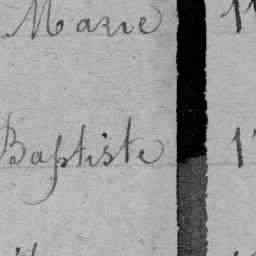 Marie
Baptiste